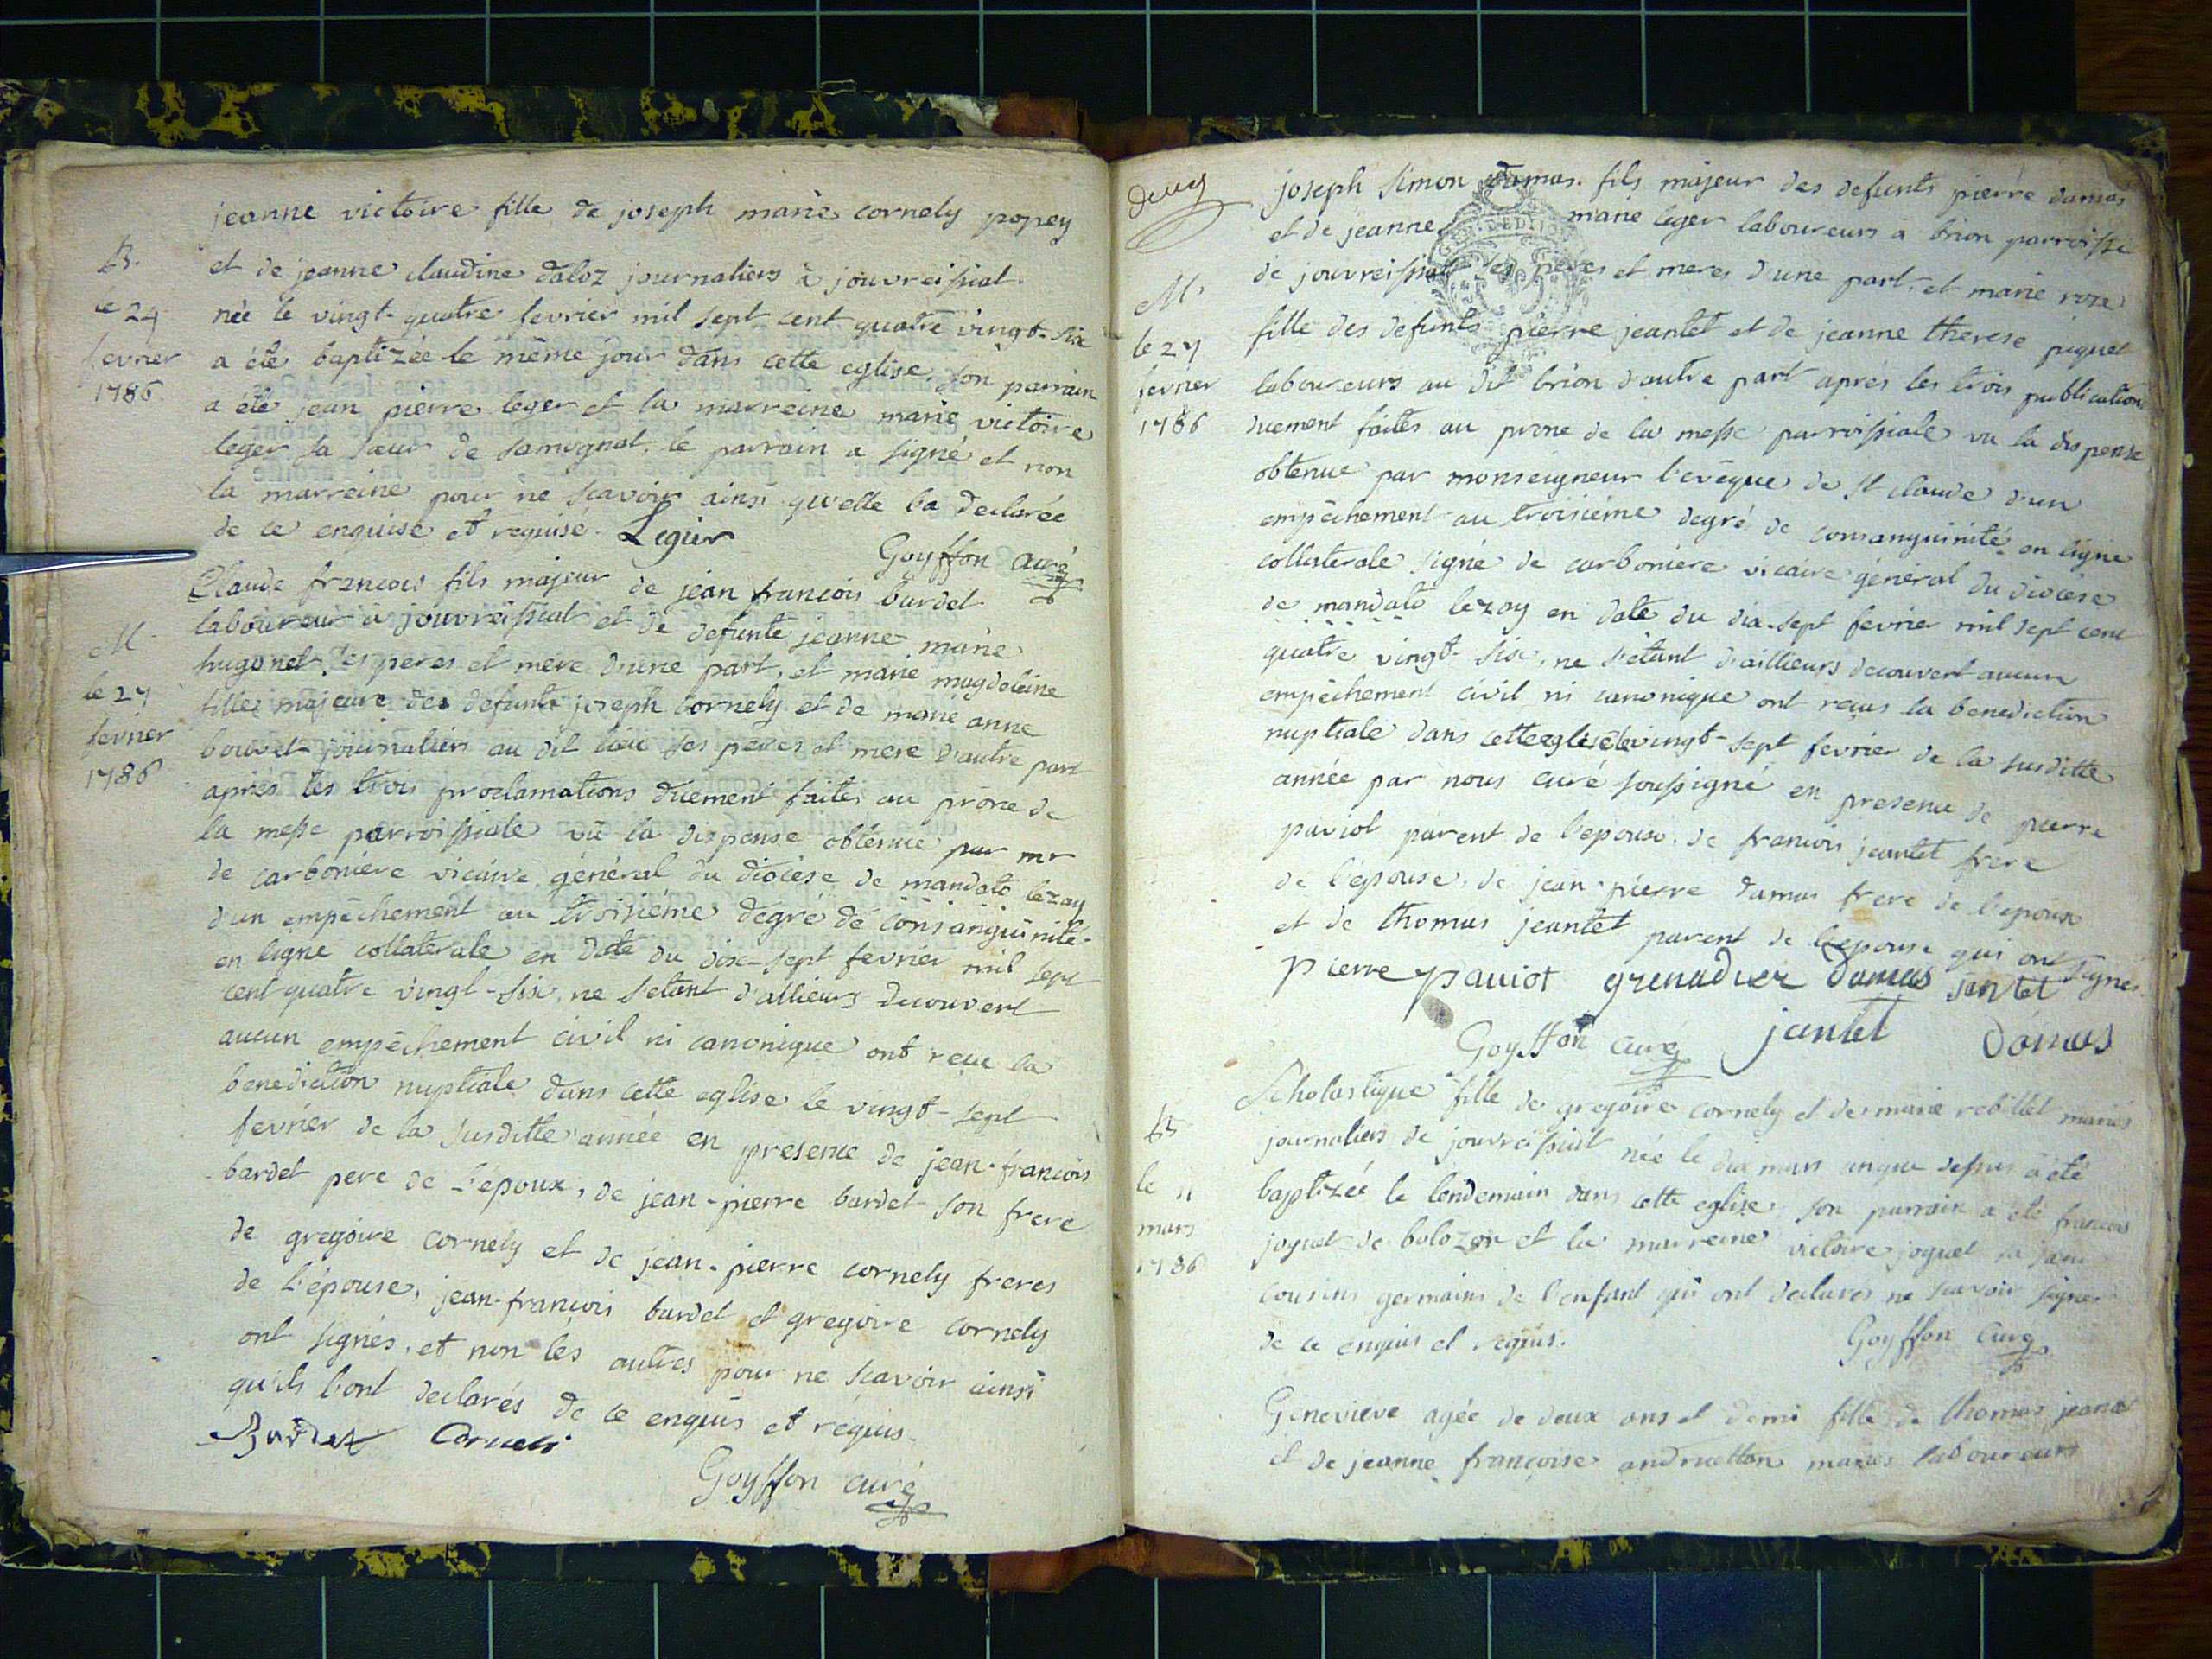 jeanne victoire fille de joseph marie cornely popey
B.
et de jeanne claudine daloz journaliers à jouvreissiat.
le 24
née le vingt-quatre fevrier mil sept cent quatre vingt-six
fevrier
a été baptizée le même jour dans cette eglise, son parrain
1786
a été jean pierre leger et la marreine marie victoire
leger sa sœur de samognat. le parrain a signé et non
la marreine pour ne scavoir ainsi qu'elle la declarée
de ce enquise et requise. Legier
Goyffon curé
Claude francois fils majeur de jean francois bardet
laboureur à jouvreissiat et de defunte jeanne marie
M.
hugonet, ses peres et mere d'une part, et marie magdeleine
le 27
fille majeure des defunts joseph cornely et de marie anne
fevrier
bouvet journaliers au dit lieu ses peres et mere d'autre part
1786
après les trois proclamations düement faites au prône de
la messe parroissiale vû la dispense obtenue par mr
de carboniere vicaire général du diocèse de mandato lezay
d'un empêchement au troisiéme degré de consanguinité
en ligne collaterale en date du dix-sept fevrier mil sept
cent quatre vingt-six, ne setant d'allieurs decouvert
aucun empêchement civil ni canonique ont reçu la
benediction nuptiale dans cette eglise le vingt-sept
fevrier de la susditte année en presence de jean-francois
bardet pere de l'époux, de jean-pierre bardet son frere
de gregoire cornely et de jean-pierre cornely freres
de l'épouse, jean-francois bardet et gregoire cornely
ont signés, et non les autres pour ne scavoir ainsi
qu'ils l'ont declarés de ce enquis et requis.
Bardet Corneli
Goyffon curé
deux
joseph simon damas. fils majeur des defunts pierre damas
et de jeanne marie leger laboureurs a brion parroisse
M.
de jouvreissiat ses peres et meres d'une part, et marie roze
le 27
fille des defunts pierre jeantet et de jeanne therese piquet
fevrier
laboureurs au dit brion d'autre part aprés les trois publications
1786
duement faites au prone de la messe parroissiale vu la dispense
obtenue par monseigneur l'evêque de st claude d'un
empêchement au troisiéme degré de consanguinité en ligne
collaterale signé de carboniere vicaire général du diocèse
de mandato lezay en date du dix-sept fevrier mil sept cent
quatre vingt-six, ne s'étant d'aillieurs decouvert aucun
empêchement civil ni canonique ont reçus la benediction
nuptiale dans cette eglise le vingt-sept fevrier de la susditte
année par nous curé soussigné en presence de pierre
paviot parent de l'epoux. de francois jeantet frere
de l'épouse, de jean-pierre damas frere de l'epoux
et de thomas jeantet parent de l'epouse qui ont signés.
pierre paviot grenadier damas jantet
Goyffon curé jantet damas
Scholastique fille de gregoire cornely et de marie rebillet mariés
B
journaliers de jouvreissiat née le dix mars anque dessus a été
le 11
baptizée le lendemain dans cette eglise, son parrain a été francois
mars
joguet de bolozon et la marreine victoire joguet sa sœur
1786
cousins germains de l'enfant qui ont declarés ne scavoir signer
de ce enquis et requis. Goyffon curé
Géneviéve agée de deux ans et demi fille de thomas
et de jeanne françoise mariés laboureurs